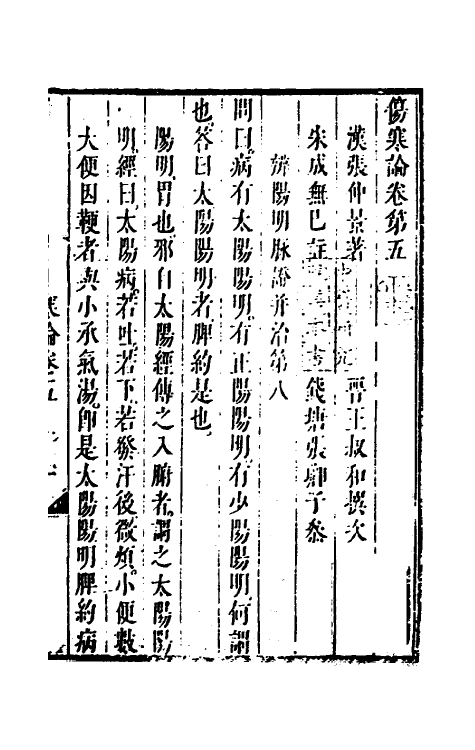 傷寒論卷第五
漢張仲景著 晉王叔和撰次
宋成無巳註 錢塘張卿子叅
辨陽明脉證并治第八
問曰病有太陽陽明有正陽陽明有少陽陽明何謂
也答曰太陽陽明者脾約是也
陽明胃也邪自太陽經傳之入腑者謂之太陽陽
明經曰太陽病若吐若下若發汗後微煩小便數
大便因鞕者與小承氣湯即是太陽陽明脾約病